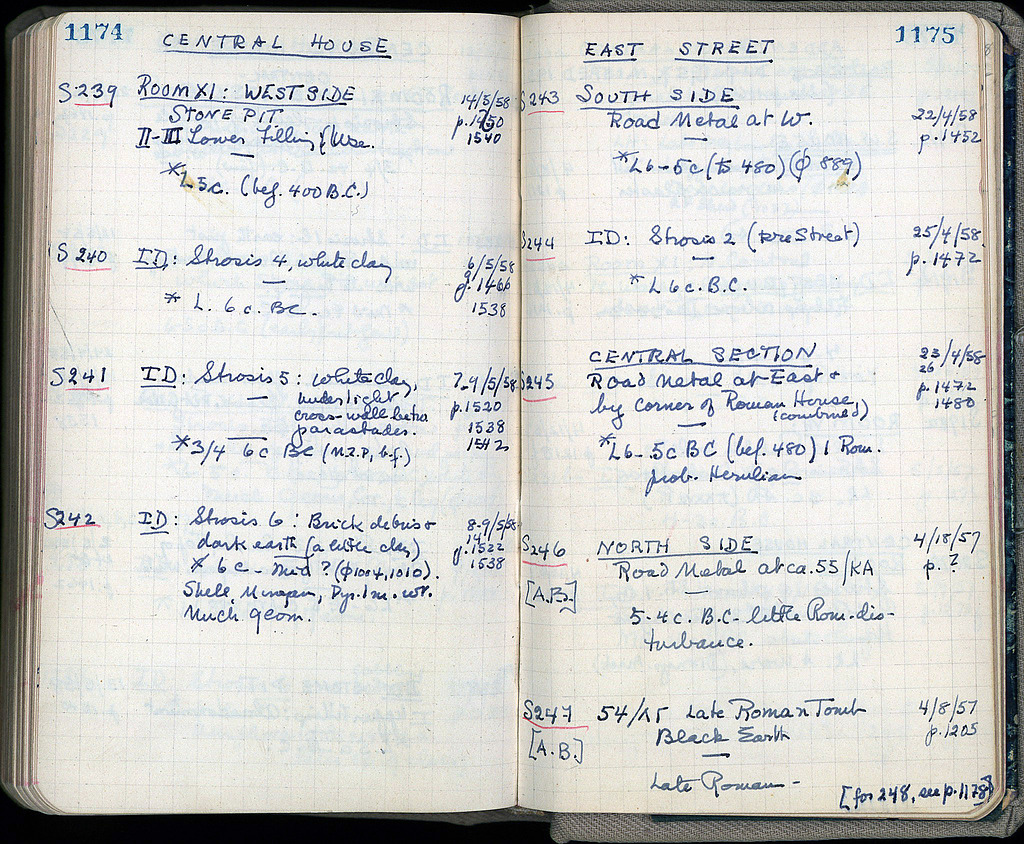 1174
CENTRAL HOUSE
S239 ROOM XI: WEST SIDE 14/5/58
STONE PIT. p.1450
II-III Lower Filling & Use. 1540
*L-5c. (bef. 400 B.C.)
S240 ID: Strosis 4, white clay 6/5/58
p.1466
* L. 6 c. BC. 1538
S241 ID: Strosis 5: white clay, 7-9/5/58
under light
cross-wall betw. p.1520
parastades. 1538
*3/4 6c BC (N.2.P, b.f.) 1542
S242 ID: Strosis 6: Brick debris & 8-9/5/58
dark earth (a little clay) 14
p.1522
* 6c - mid? (φ1004, 1010). 1538
Shell, Dyp. 1 m. wt.
Much geom.
1175
EAST STREET
S243 SOUTH SIDE
Road Metal at W. 22/4/58
p.1452
*L6-5c (to 480) (φ 889)
S244 ID: Strosis 2 (preStreet) 25/4/58
p.1472
* L 6c. B.C.
CENTRAL SECTION 23/4/58
26
S245 Road Metal at East & p.1472
by corner of Roman House, 1480
(combined)
*L6-5c BC (bef. 480) 1 Rom.
prob. Herulian
S246 NORTH SIDE 4/18/57
Road Metal at ca. 55/KA p. ?
[A.B.]
5-4c. B.C.- little Rom. dis-
turbance.
S247 54/ Late Roman Tomb 4/8/57
[A.B.] Black Earth p.1205
Late Roman -
[for 248, see p.1178]